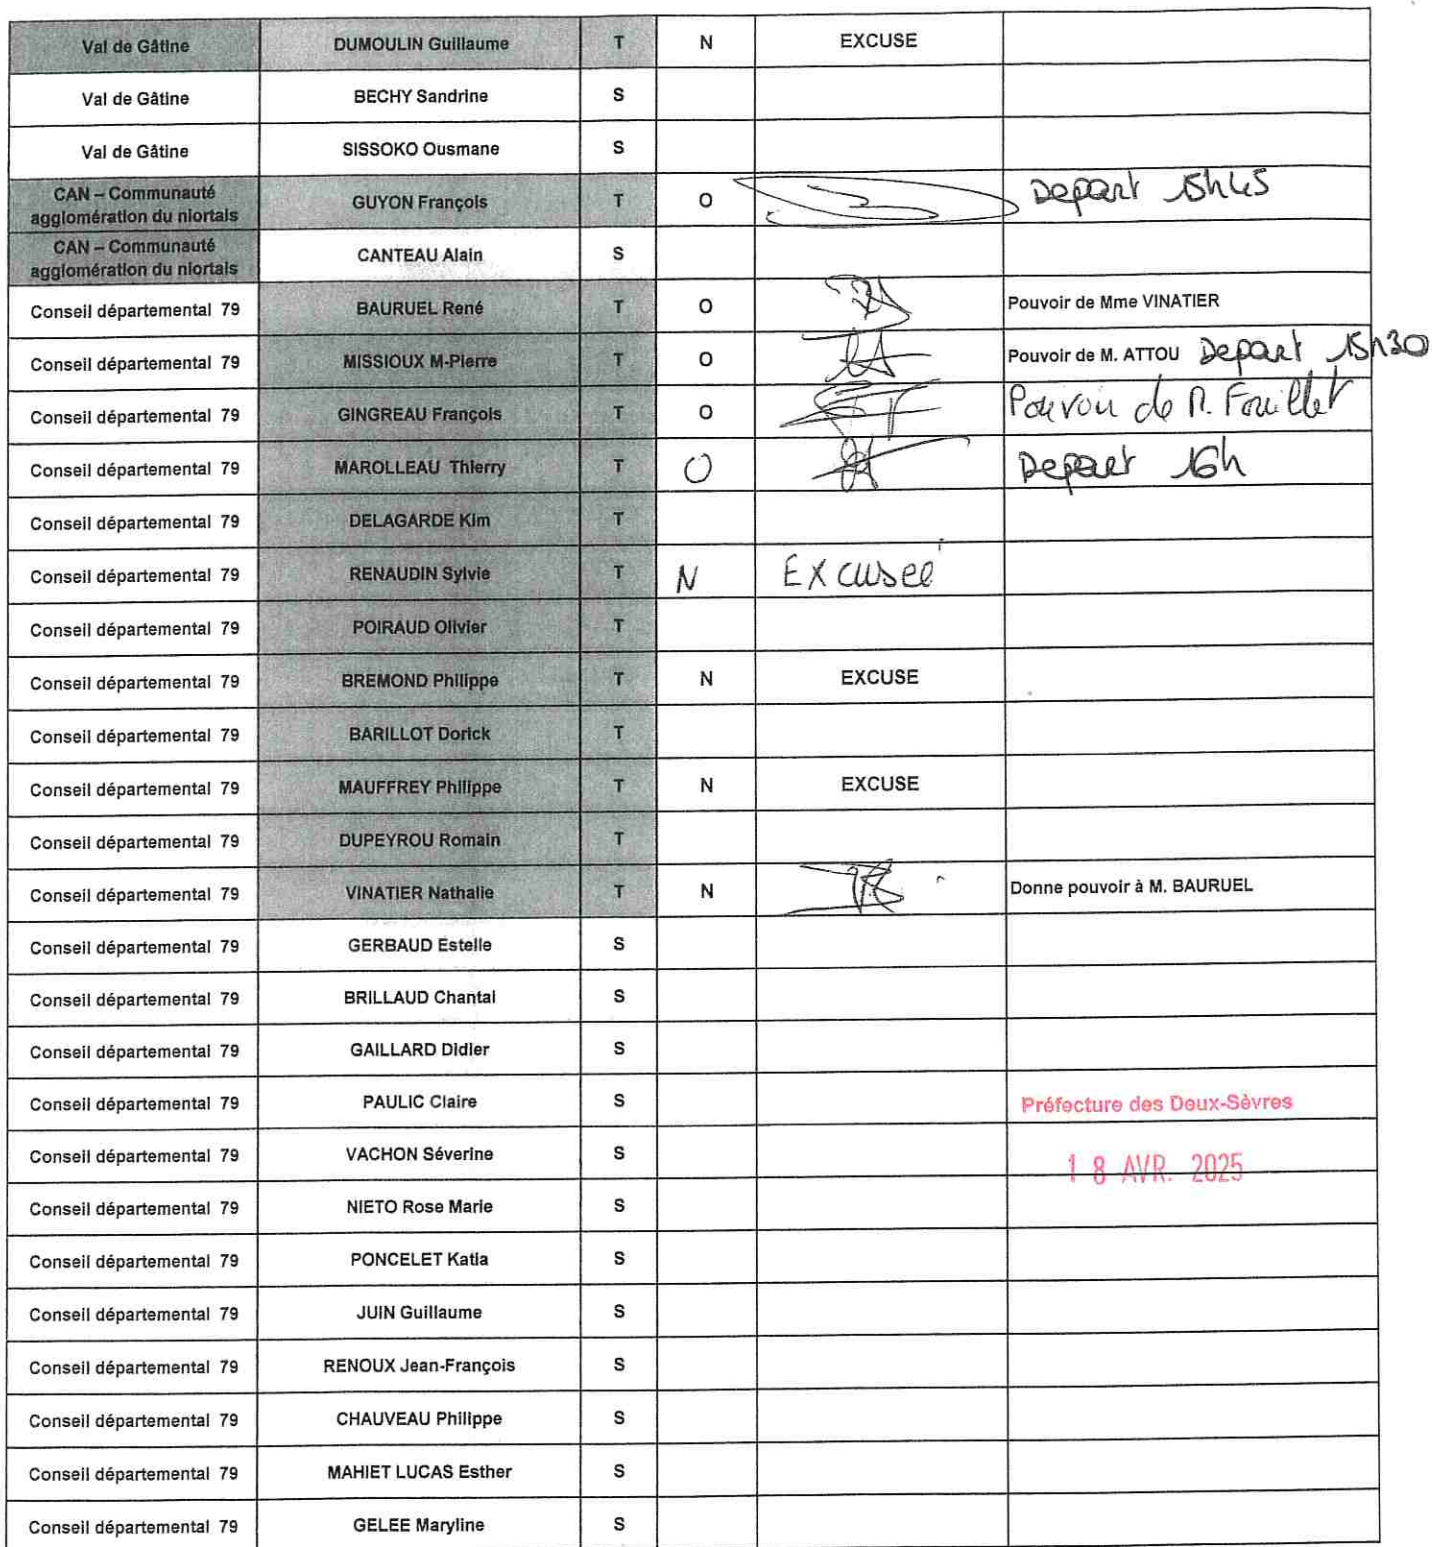 Val de Gâtine DUMOULIN Guillaume T N EXCUSE
Val de Gâtine BECHY Sandrine S
Val de Gâtine SISSOKO Ousmane S
CAN – Communauté
agglomération du niortais GUYON François T O Depart 15h45
CAN – Communauté
agglomération du niortais CANTEAU Alain S
Conseil départemental 79 BAURUEL René T O Pouvoir de Mme VINATIER
Conseil départemental 79 MISSIOUX M-Pierre T O Pouvoir de M. ATTOU Depart 15h30
Conseil départemental 79 GINGREAU François T O Pouvoir de M. Fouillet
Conseil départemental 79 MAROLLEAU Thierry T O Depart 16h
Conseil départemental 79 DELAGARDE Kim T
Conseil départemental 79 RENAUDIN Sylvie T N Excusée
Conseil départemental 79 POIRAUD Olivier T
Conseil départemental 79 BREMOND Philippe T N EXCUSE
Conseil départemental 79 BARILLOT Dorick T
Conseil départemental 79 MAUFFREY Philippe T N EXCUSE
Conseil départemental 79 DUPEYROU Romain T
Conseil départemental 79 VINATIER Nathalie T N Donne pouvoir à M. BAURUEL
Conseil départemental 79 GERBAUD Estelle S
Conseil départemental 79 BRILLAUD Chantal S
Conseil départemental 79 GAILLARD Didier S
Conseil départemental 79 PAULIC Claire S Préfecture des Deux-Sèvres
Conseil départemental 79 VACHON Séverine S 18 AVR. 2025
Conseil départemental 79 NIETO Rose Marie S
Conseil départemental 79 PONCELET Katia S
Conseil départemental 79 JUIN Guillaume S
Conseil départemental 79 RENOUX Jean-François S
Conseil départemental 79 CHAUVEAU Philippe S
Conseil départemental 79 MAHIET LUCAS Esther S
Conseil départemental 79 GELEE Maryline S